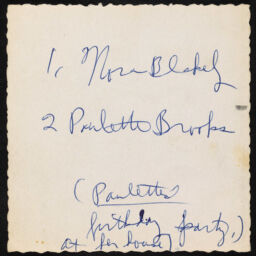 1, Nora Blakely
2 Paulette Brooks
(Paulette's
birthday party,)
at her house